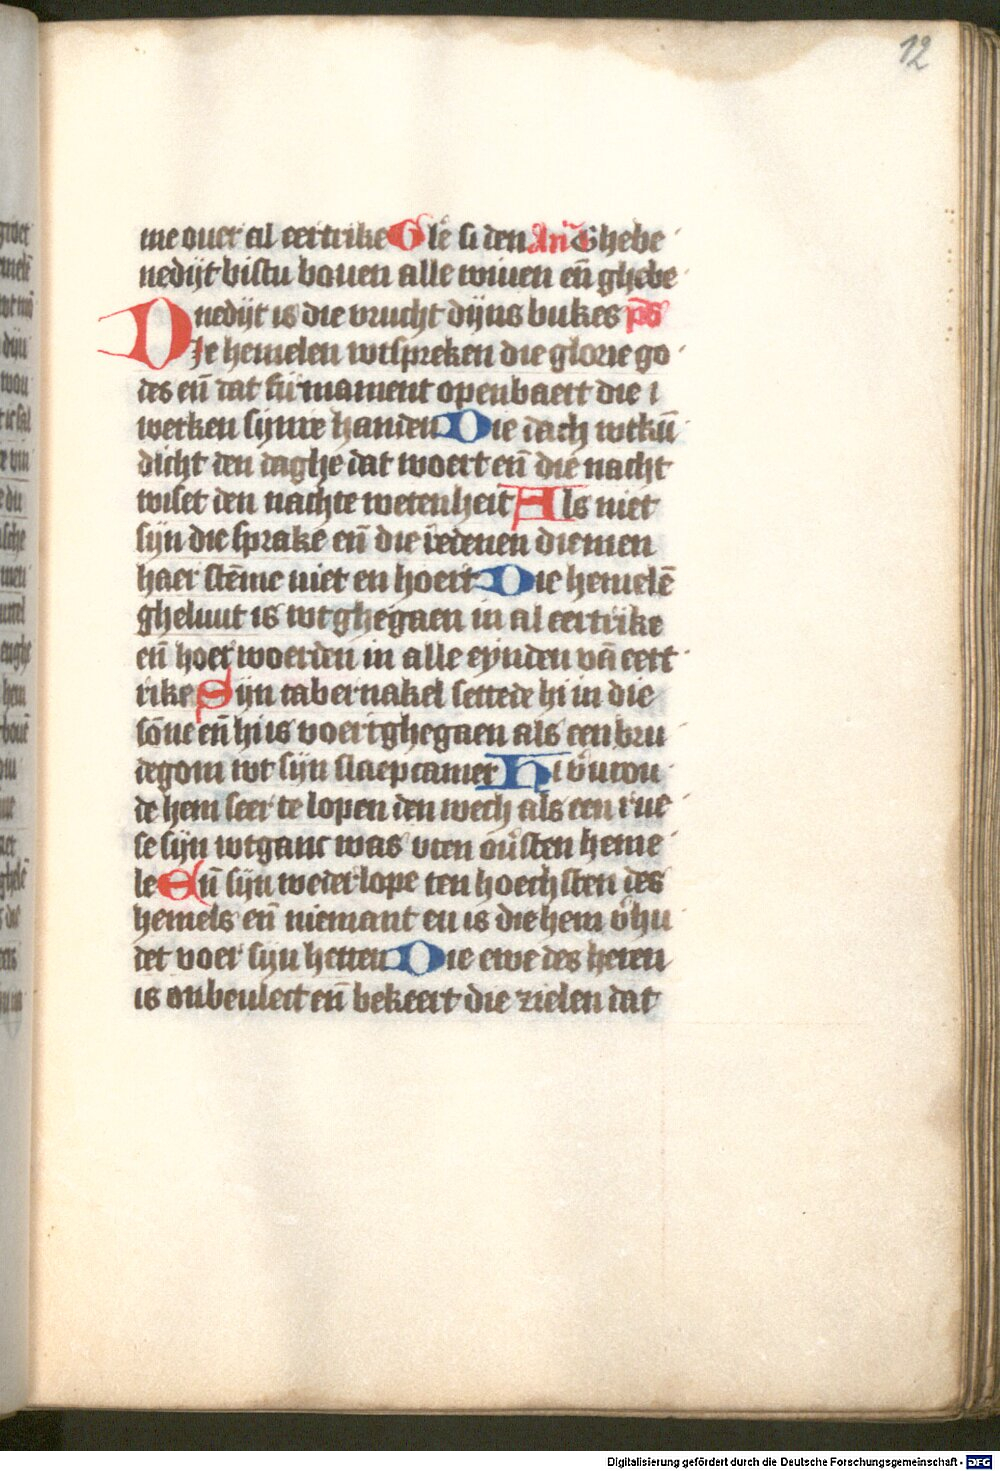 12
me ouer al eertrike Gle si den An Ghebe
nedijt bistu bouen alle wiuen en̄ ghebe
nedijt is die vrucht dijns bukes ps
Die hemelen wtspreken die glorie go
des en̄ dat firmament openbaert die
werken sijnre handen Die dach wtkū
dicht den daghe dat woert en̄ die nacht
wiset den nachte wetenheit Als niet
sijn die sprake en̄ die redenen die men
haer stēme niet en hoert Die hemelē
gheluut is wtghegaen in al eertrike
en̄ hoer woerden in alle eynden vā eert
rike Sijn tabernakel settede hi in die
sōne en̄ hi is voertghegaen als een bru
degom wt sijn slaepcamer Hi v̄urou
de hem seer te lopen den wech als een rue
se sijn wtganc was vten ou̾sten heme
le En̄ sijn wederlope ten hoechsten des
hemels en̄ niemant en is die hem v̾hu
det voer sijn hetten Die ewe des heren
is onbeulect en̄ bekeert die zielen dat
Digitalisierung gefördert durch die Deutsche Forschungsgemeinschaft - DFG